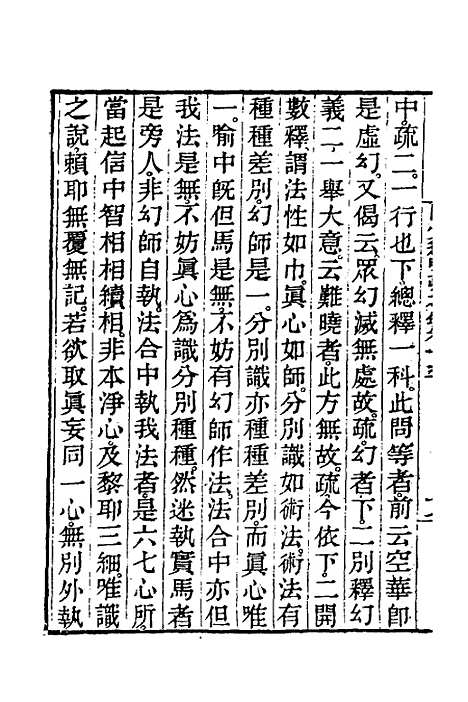 中。疏二。一行也下。總釋一科。此問等者。前云空華卽
是虛幻。又偈云。眾幻滅無處故。疏幻者下。二別釋幻
義二。一舉大意。云難曉者。此方無故。疏今依下。二開
數釋。謂法性如巾。眞心如師。分別識如術法。術法有
種種差別。幻師是一。分別識亦種種差別。而眞心唯
一。喻中旣但馬是無。不妨有幻師作法。法合中亦但
我法是無。不妨眞心爲識分別種種。然迷執實馬者
是旁人。非幻師自執。法合中執我法者。是六七心所。
當起信中智相相續相。非本淨心。及黎耶三細。唯識
之說。賴耶無覆無記。若欲取眞妄同一心。無別外執